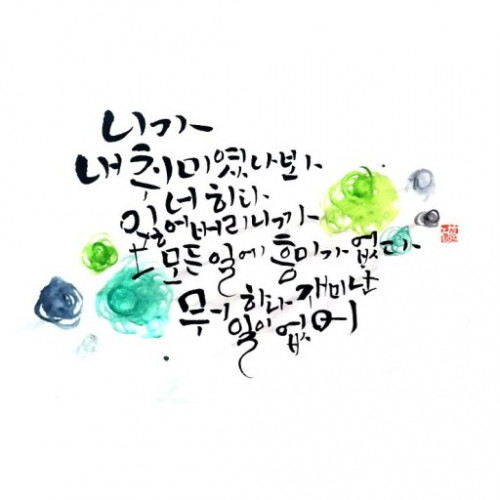 니가
내 취미였나보다
너 하나
잃어버리니까
모든 일에 흥미가 없다
무엇 하나 재미난
일이 없어